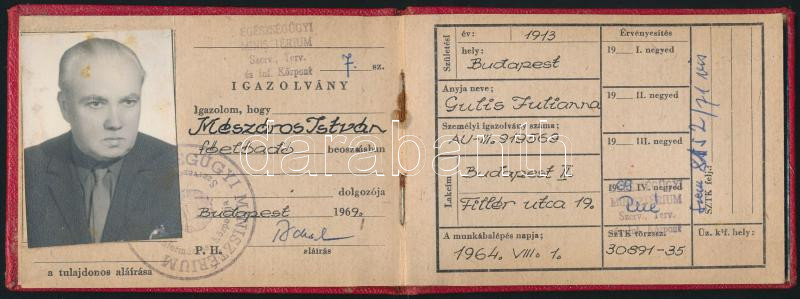 EGÉSZSÉGÜGYI
MINISZTÉRIUM
Szerv., Terv.
és Inf. Központ 7. sz.
IGAZOLVÁNY
Igazolom, hogy
Mészáros István
főelőadó beosztásban
dolgozója
Budapest 1969.
P. H. aláírás
a tulajdonos aláírása
EGÉSZSÉGÜGYI MINISZTÉRIUM
Születési
év: 1913
hely:
Budapest
Anyja neve:
Gulis Julianna
Személyi igazolvány száma:
AU-III. 919369
Lakcím
Budapest II.
Fillér utca 19.
A munkábalépés napja:
1964. VIII. 1.
Érvényesítés
19 I. negyed
19 II. negyed
19 III. negyed
1969 IV. negyed
EGÉSZSÉGÜGYI
MINISZTÉRIUM
Szerv., Terv.
és Inf. Központ
SzTK törzssz.
30891-35
SZTK felj.:
Üz. kif. hely:
darabanth